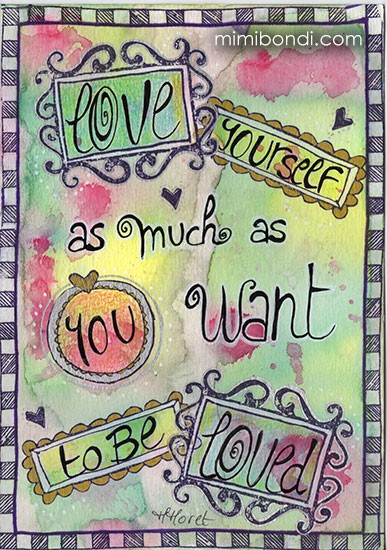 mimibondi.com
Love
yourself
as much as
you want
to Be
loved